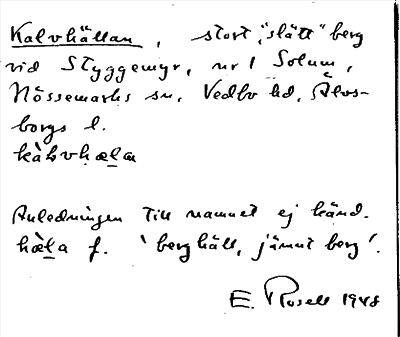 Kalvhällan, stort, "slätt" berg
vid Styggemyr, nr 1 Solum,
Nössemarks sn, Vedbo hd, Älvs-
borgs l.
kàɫvhæḷa
Anledningen till namnet ej känd.
hæ̀ḷa f. 'berghäll, jämnt berg'.
E. Rosell 1948